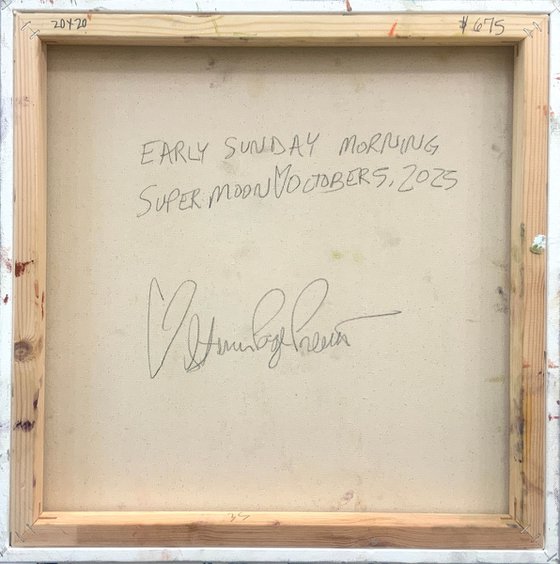 20x20
$675
EARLY SUNDAY MORNING
SUPER MOON♡OCTOBER 5, 2025